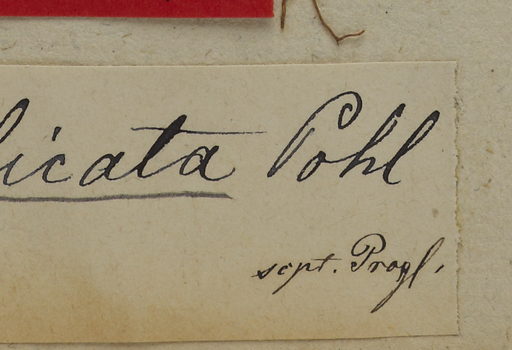 licata Pohl
scpt. Progl.